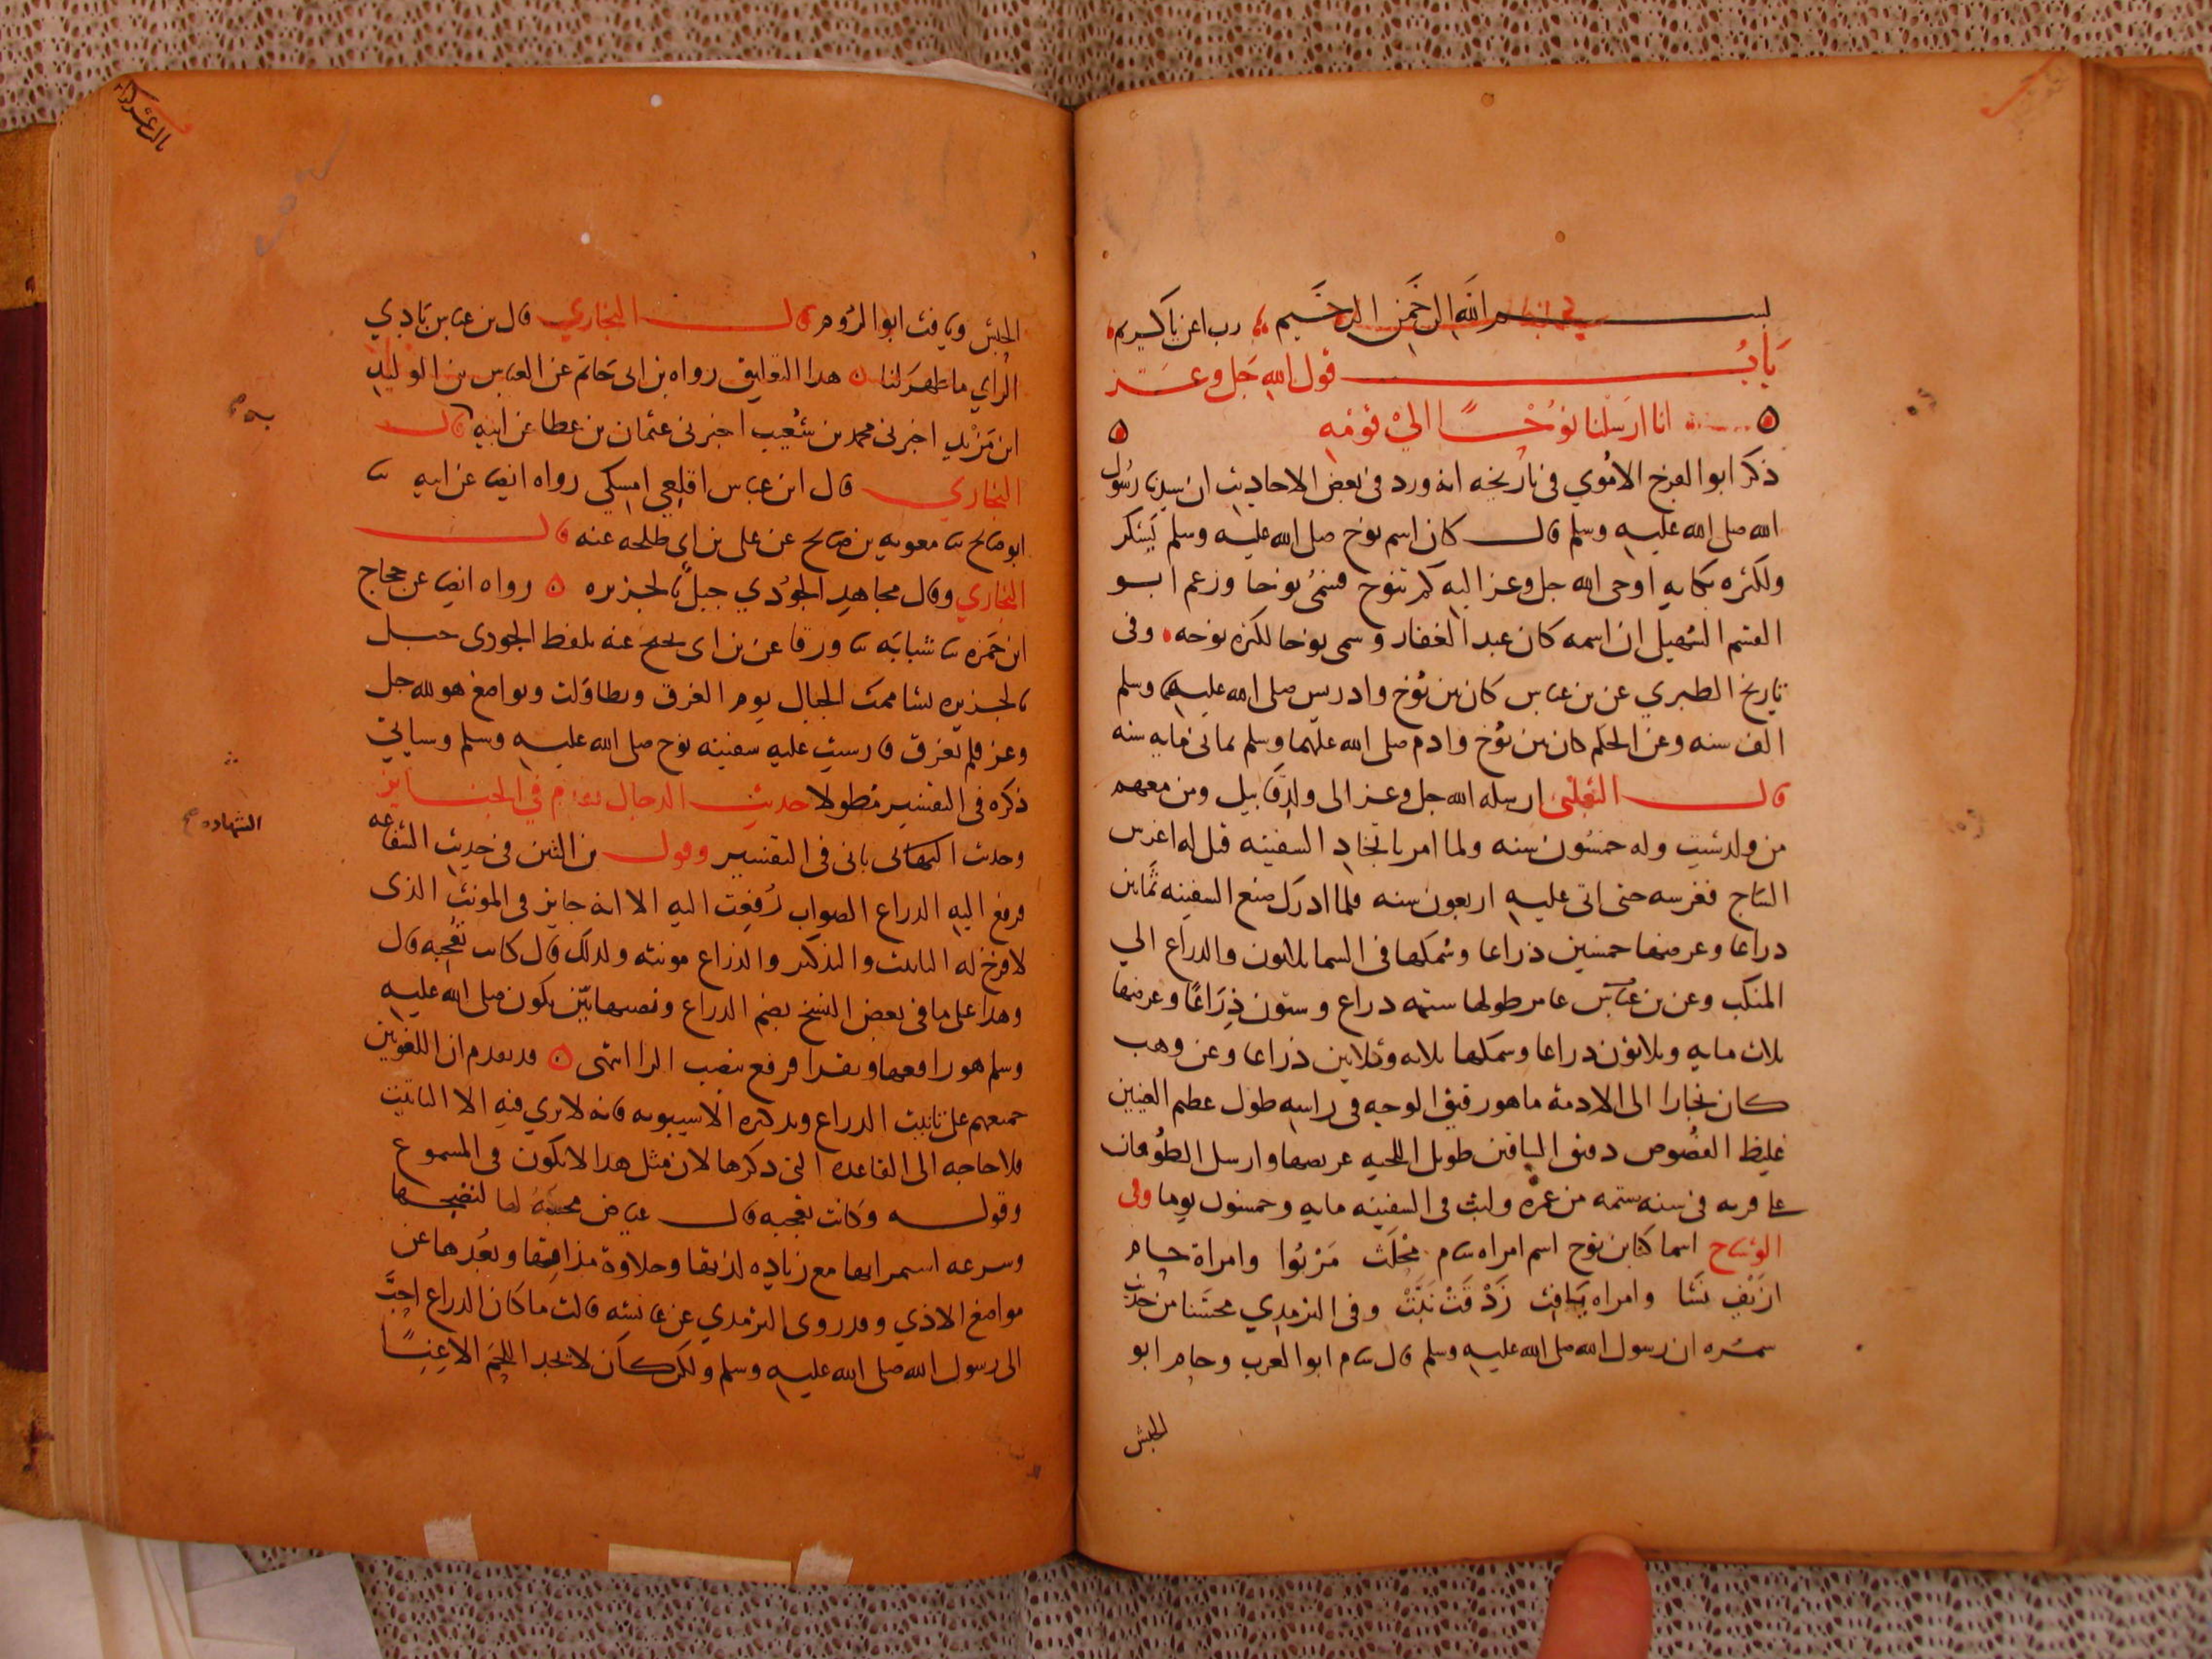 بسم الله الرحمن الرحيم رب اعن ياكريم
باب قول الله جل وعز
انا ارسلنا نوحا الي قومه
ذكر ابوالفرج الاموي في تاريخه انه ورد في بعض الاحاديث ان سيدنا رسول
الله صلى الله عليه وسلم قال كان اسم نوح صلى الله عليه وسلم يشكر
ولكثره بكايه اوحى الله جل وعز اليه كم تنوح فسمي نوحا وزعم ابو
القسم السهيلي ان اسمه كان عبد الغفار وسمى نوحا لكثره نوحه وفى
تاريخ الطبري عن بن عباس كان بين نوح وادريس صلى الله عليهما وسلم
الف سنه وعن الحكم كان بين نوح وادم صلى الله عليهما وسلم ثماني مايه سنه
قال الثعلبى ارسله الله جل وعز الى ولد قابيل ومن معهم
من ولد شيث وله خمسون سنه ولما امر باتخاد السفينه قيل له اغرس
الساج فغرسه حتى اتى عليه اربعون سنه فلما ادرك صنع السفينه ثمانين
دراعا وعرضها خمسين ذراعا وسمكها في السما ثلاثون والدراع الي
المنكب وعن بن عباس طولها ستمه دراع وستون ذراعا وعرضها
ثلاث مايه وثلاثون دراعا وسمكها ثلاثه وثلاثين ذراعا وعن وهب
كان نجارا الى الادمة ماهو رقيق الوجه في راسه طول عظيم العينين
غليظ الفصوص دقيق الساقين طويل اللحيه عريضها وارسل الطوفان
في سنه ستمه من عمره ولبث في السفينه مايه وخمسون يوما وفى
الوشاح اسما كناين نوح اسم امراه سام محلث مربوا وامراة حام
ازنف نشا وامراه يافث زدقت نبت وفى الترمدي محسنا من حديث
سمره ان رسول الله صلى الله عليه وسلم قال سام ابو العرب وحام ابو
الحبش
الحبش ويافث ابو الروم قال البخاري قال بن عباس بادي
الراي ما ظهر لنا هدا التعليق رواه بن ابى حاتم عن العباس بن الوليد
ابن مزيد اخبرنى محمد بن شعيب اخبرنى عثمان بن عطا عن ابيه قال
البخاري قال ابن عباس اقلعي امسكي رواه ايضا عن ابيه ثنا
ابو صالح ثنا معويه بن صالح عن على بن ابى طلحه عنه قال
البخاري وقال مجاهد الجودي جبل بالجزيره رواه ايضا عن حجاج
ابن حمزه ثنا شبابه ثنا ورقا عن بن ابى نجيح عنه بلفظ الجودى جبل
بالجزيره تشاممت الجبال يوم الغرق وتطاولت وتواضع هو لله جل
وعز فلم تغرق فارسيت عليه سفينه نوح صلى الله عليه وسلم وسياتي
ذكره في التفسير مطولا حديث الدجال تقدم في الجنايز
وحديث ياتى فى التفسير وقول بن التين في حديث الشفاعه
فرفع اليه الدراع الصواب رفعت اليه الا انه جايز في المونث الذى
لا فرج له التانيث والتذكير والذراع مونثه ولدلك قال كانت تعجبه قال
وهدا على ما في بعض النسخ بضم الدراع ونصبها بين يكون صلى الله عليه
وسلم هو رافعها ويقرا فرفع بنصب الرا انتهى قد تقدم ان اللغويين
جميعهم على تانيث الدراع وتدكيره الا سيبويه فانه لا يري فيه الا التانيث
فلا حاجه الى القاعده التى دكرها لان مثل هدا لا يكون في المسموع
وقوله وكانت تعجبه قال عياض محبته لها لنضجها
وسرعه استمرايها مع زياده لذتها وحلاوة مذاقها وبعدها عن
مواضع الاذي وقد روى الترمدي عن عائشه قالت ما كان الدراع احب
الى رسول الله صلى الله عليه وسلم ولكن كان لا يجد اللحم الا غبا
الشهاده